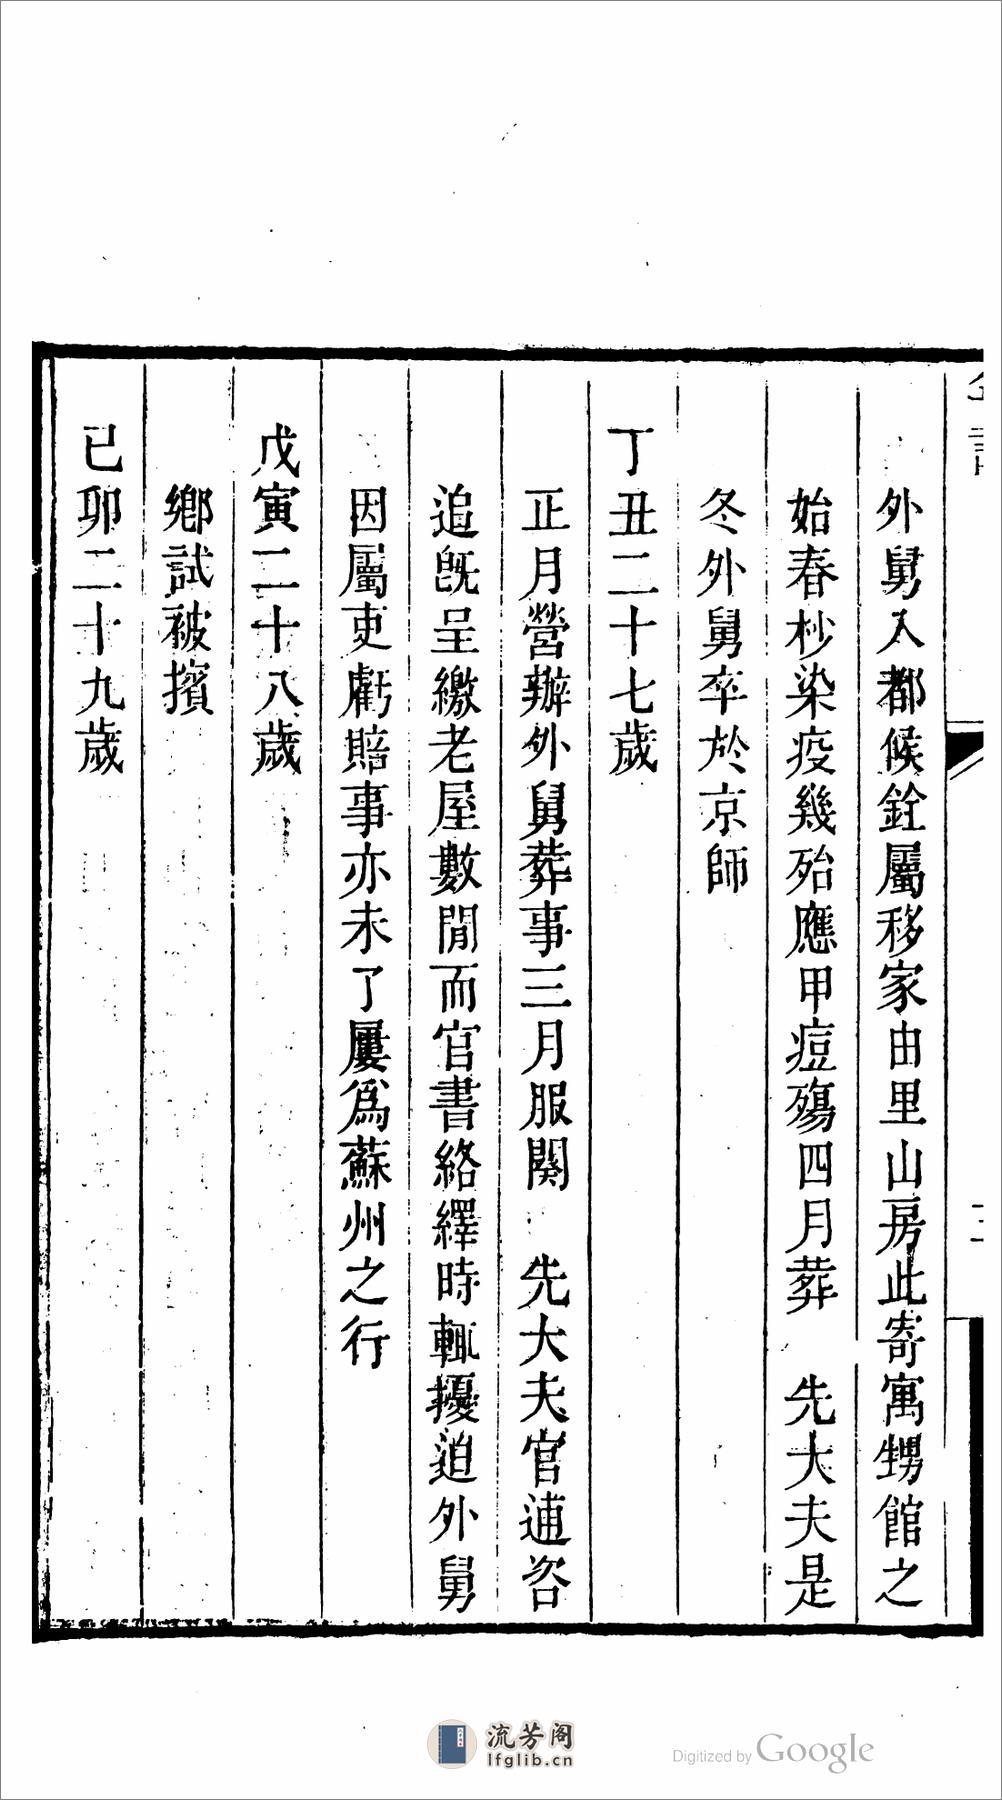 外舅入都候銓屬移家由里山房此寄寓甥館之
始春杪染疫幾殆應甲痘殤四月葬　先大夫是
冬外舅卒於京師
丁丑二十七歲
正月營辦外舅葬事三月服闋　先大夫官逋咨
追旣呈繳老屋數間而官書絡繹時輒擾迫外舅
因屬吏虧賠事亦未了屢爲蘇州之行
戊寅二十八歲
鄉試被擯
已卯二十九歲
流芳阁
lfglib.cn
Digitized by Google